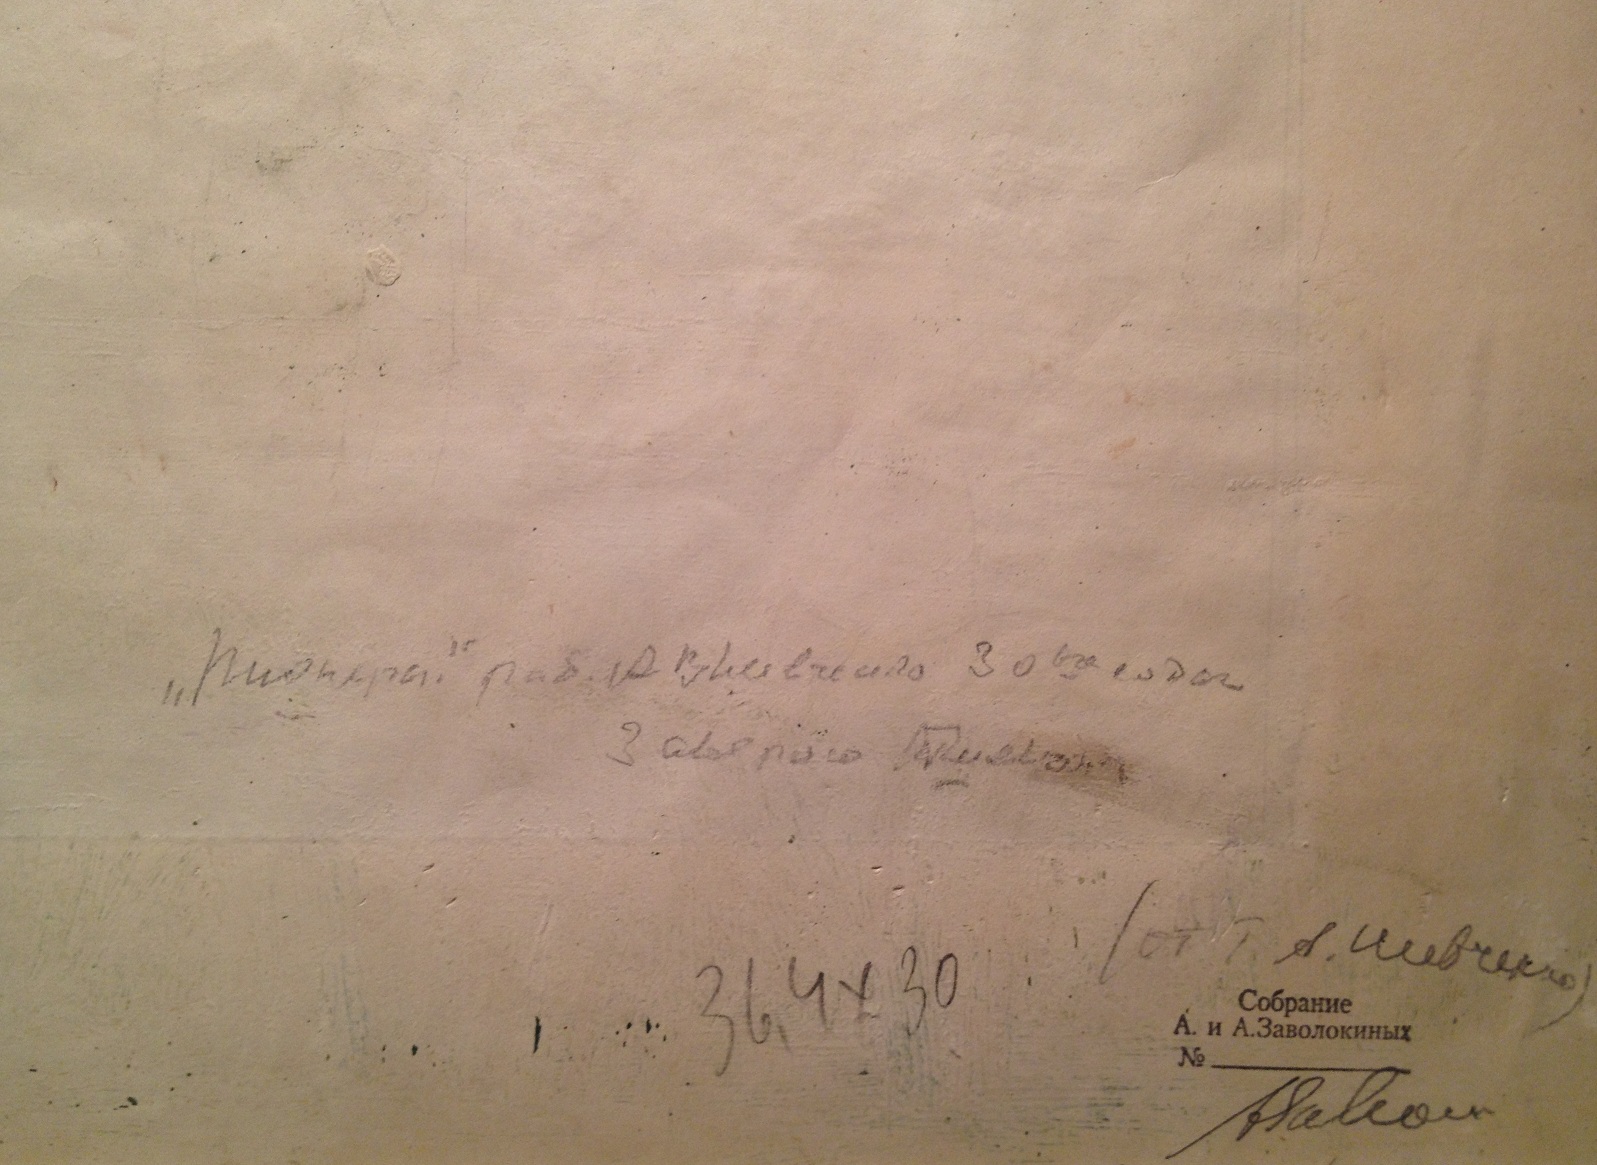 „Пионеры" раб. А Шевченко 30ые года
Заверяю
36,4 x 30
(от Т. А. Шевченко)
Собрание
А. и А.Заволокиных
№